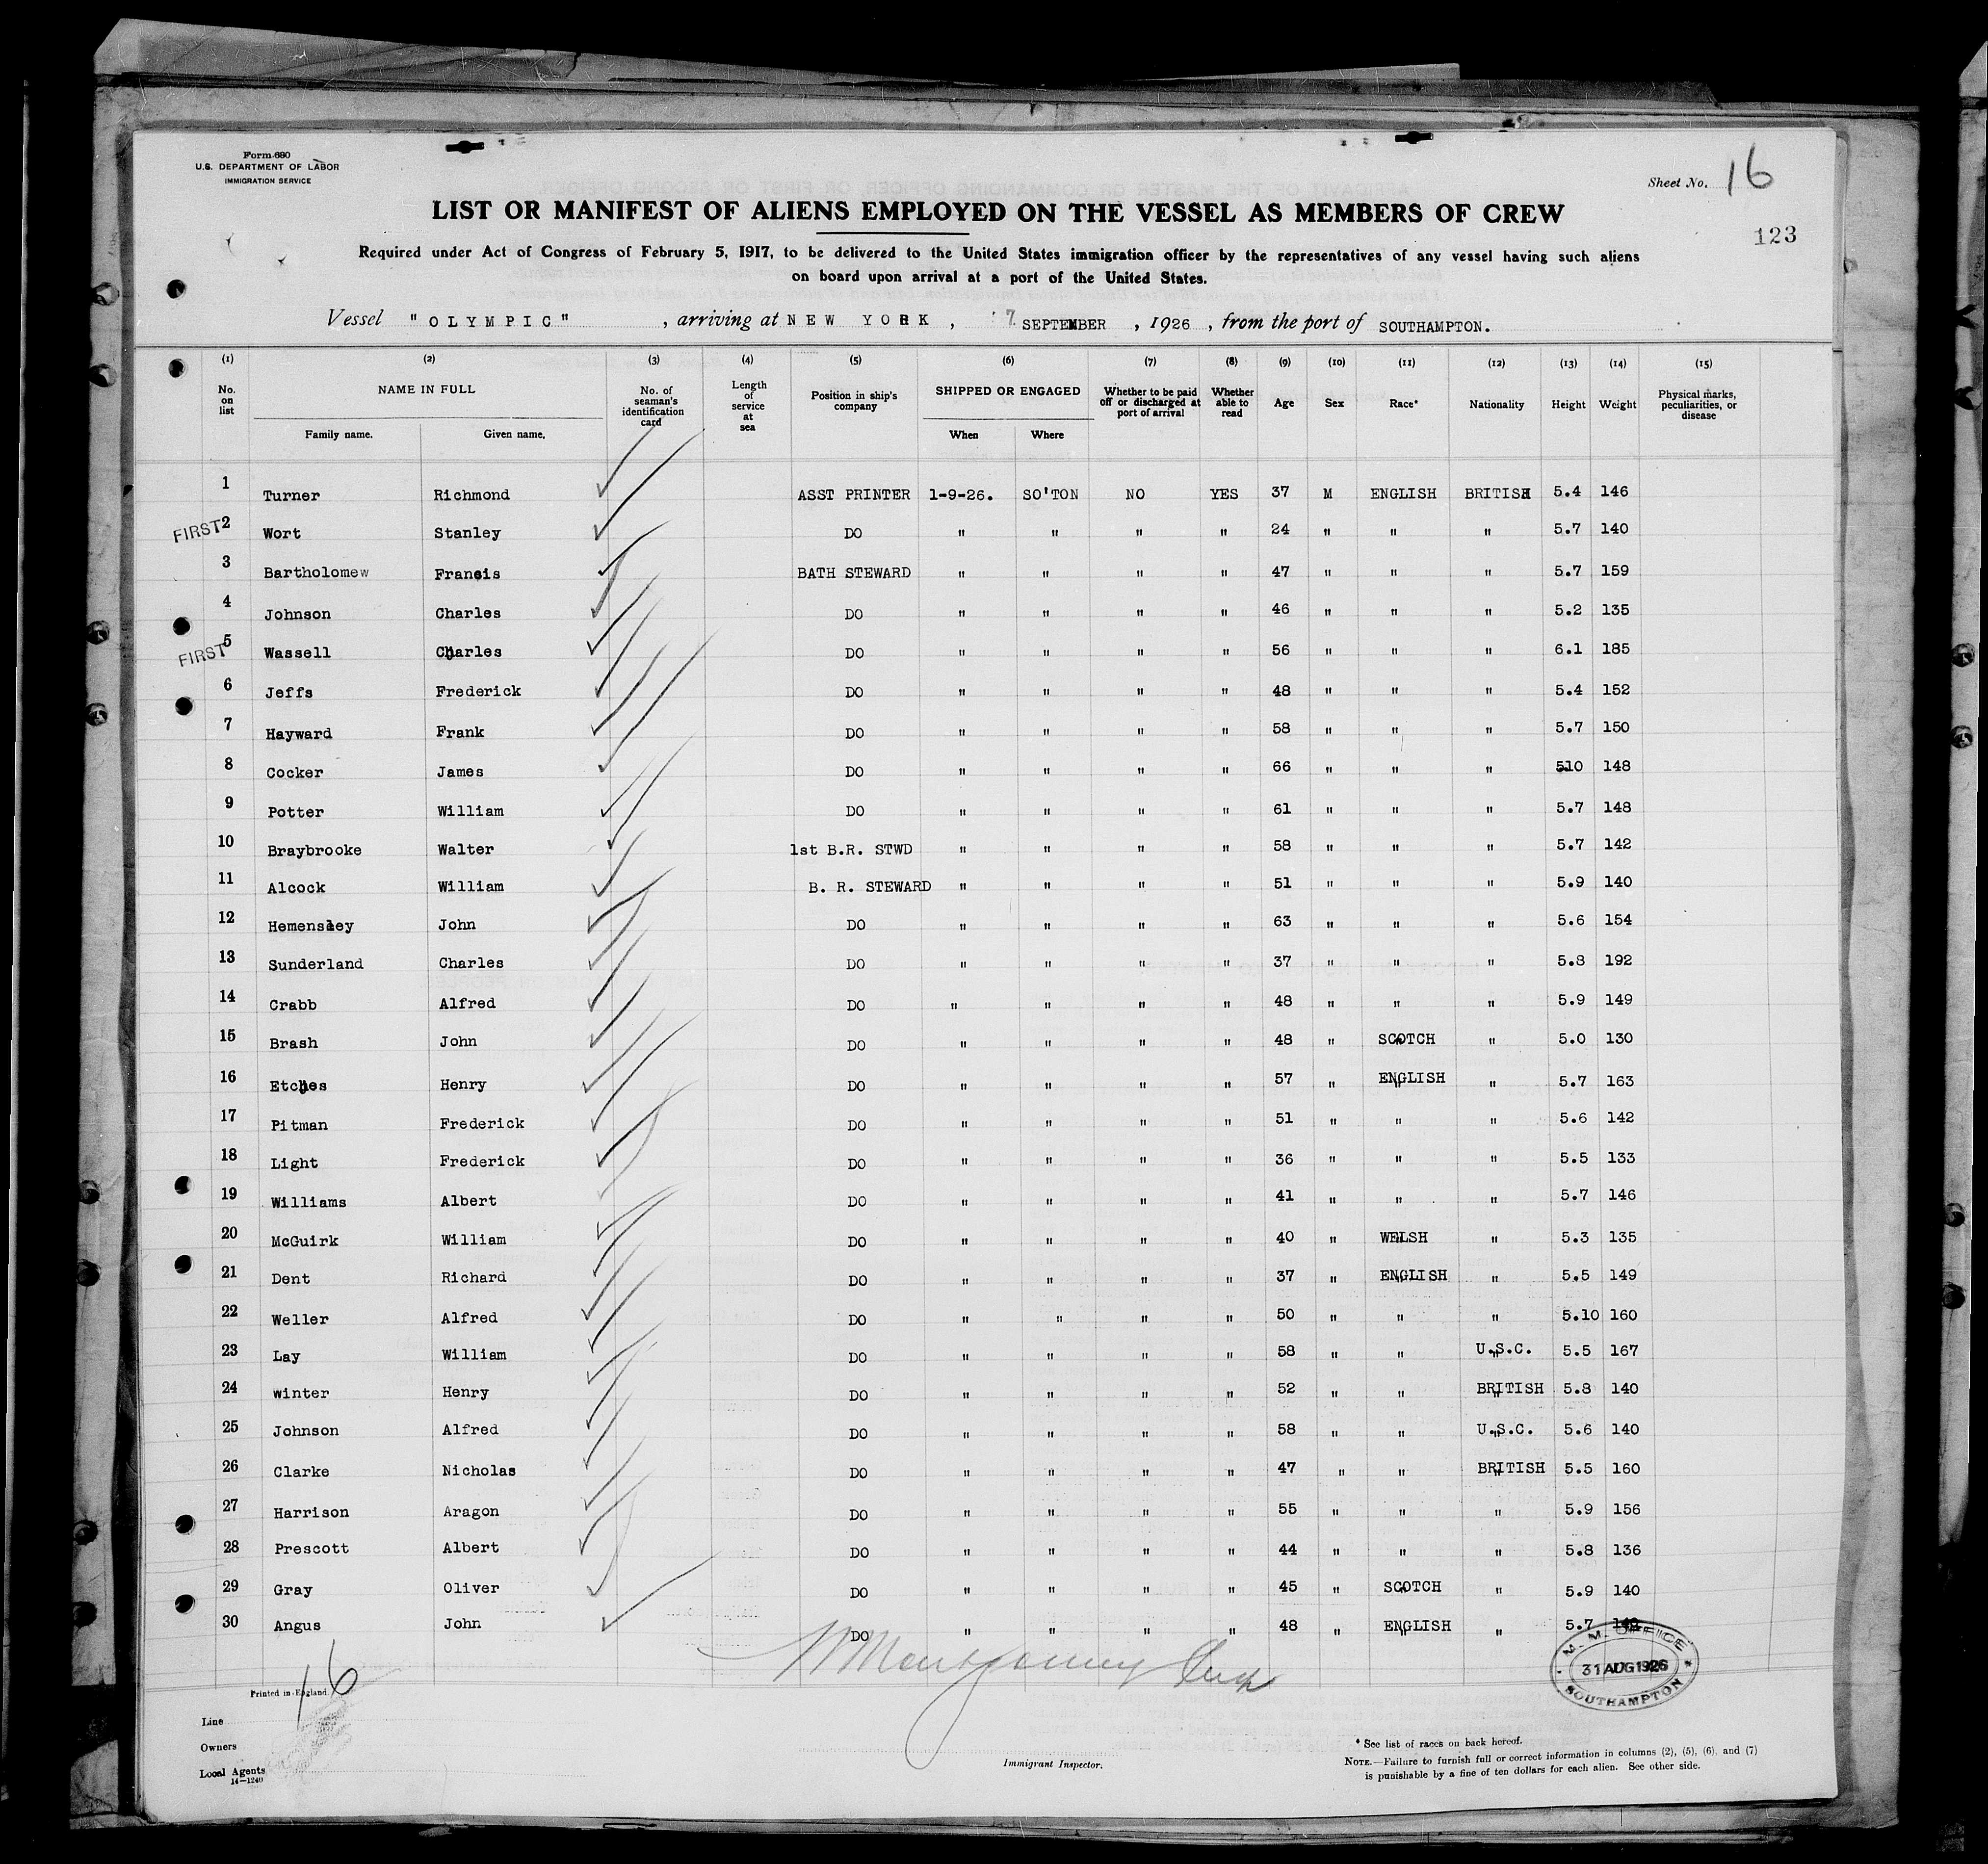 Form 680
U.S. DEPARTMENT OF LABOR
IMMIGRATION SERVICE
Sheet No. 16
LIST OR MANIFEST OF ALIENS EMPLOYED ON THE VESSEL AS MEMBERS OF CREW
123
Required under Act of Congress of February 5, 1917, to be delivered to the United States immigration officer by the representatives of any vessel having such aliens
on board upon arrival at a port of the United States.
Vessel "OLYMPIC", arriving at NEW YORK, 7 SEPTEMBER, 1926, from the port of SOUTHAMPTON.
(1) (2) (3) (4) (5) (6) (7) (8) (9) (10) (11) (12) (13) (14) (15)
No. on list NAME IN FULL No. of seaman's identification card Length of service at sea Position in ship's company SHIPPED OR ENGAGED Whether to be paid off or discharged at port of arrival Whether able to read Age Sex Race* Nationality Height Weight Physical marks, peculiarities, or disease
Family name. Given name. When Where
1 Turner Richmond ASST PRINTER 1-9-26. SO'TON NO YES 37 M ENGLISH BRITISH 5.4 146
FIRST 2 Wort Stanley DO " " " " 24 " " " 5.7 140
3 Bartholomew Francis BATH STEWARD " " " " 47 " " " 5.7 159
4 Johnson Charles DO " " " " 46 " " " 5.2 135
FIRST 5 Wassell Charles DO " " " " 56 " " " 6.1 185
6 Jeffs Frederick DO " " " " 48 " " " 5.4 152
7 Hayward Frank DO " " " " 58 " " " 5.7 150
8 Cocker James DO " " " " 66 " " " 510 148
9 Potter William DO " " " " 61 " " " 5.7 148
10 Braybrooke Walter 1st B.R. STWD " " " " 58 " " " 5.7 142
11 Alcock William B. R. STEWARD " " " " 51 " " " 5.9 140
12 Hemensley John DO " " " " 63 " " " 5.6 154
13 Sunderland Charles DO " " " " 37 " " " 5.8 192
14 Crabb Alfred DO " " " " 48 " " " 5.9 149
15 Brash John DO " " " " 48 " SCOTCH " 5.0 130
16 Etches Henry DO " " " " 57 " ENGLISH " 5.7 163
17 Pitman Frederick DO " " " " 51 " " " 5.6 142
18 Light Frederick DO " " " " 36 " " " 5.5 133
19 Williams Albert DO " " " " 41 " " " 5.7 146
20 McGuirk William DO " " " " 40 " WELSH " 5.3 135
21 Dent Richard DO " " " " 37 " ENGLISH " 5.5 149
22 Weller Alfred DO " " " " 50 " " " 5.10 160
23 Lay William DO " " " " 58 " " U.S.C. 5.5 167
24 winter Henry DO " " " " 52 " " BRITISH 5.8 140
25 Johnson Alfred DO " " " " 58 " " U.S.C. 5.6 140
26 Clarke Nicholas DO " " " " 47 " " BRITISH 5.5 160
27 Harrison Aragon DO " " " " 55 " " " 5.9 156
28 Prescott Albert DO " " " " 44 " " " 5.8 136
29 Gray Oliver DO " " " " 45 " SCOTCH " 5.9 140
30 Angus John DO " " " " 48 " ENGLISH " 5.7
M. M. OFFICE
31 AUG 1926
SOUTHAMPTON
16
Printed in England.
Line
Owners
Local Agents
14-1240
Immigrant Inspector.
* See list of races on back hereof.
NOTE.—Failure to furnish full or correct information in columns (2), (5), (6), and (7)
is punishable by a fine of ten dollars for each alien. See other side.